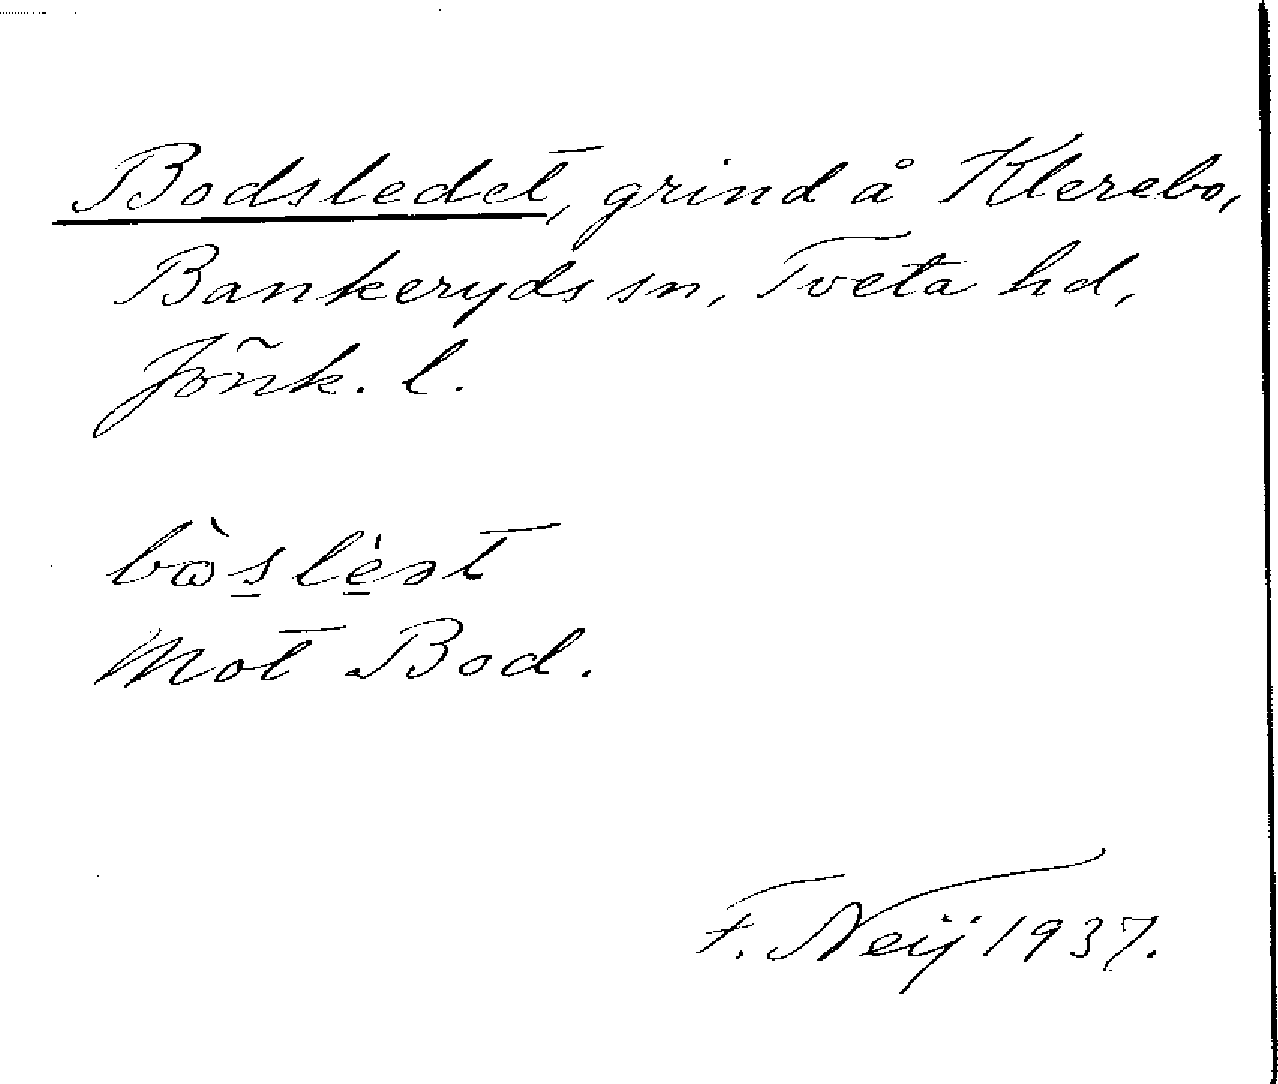 Bodsledet, grind å Klerebo,
Bankeryds sn, Tveta hd,
Jönk. l.
bòslèət
Mot Bod.
F. Neij 1937.